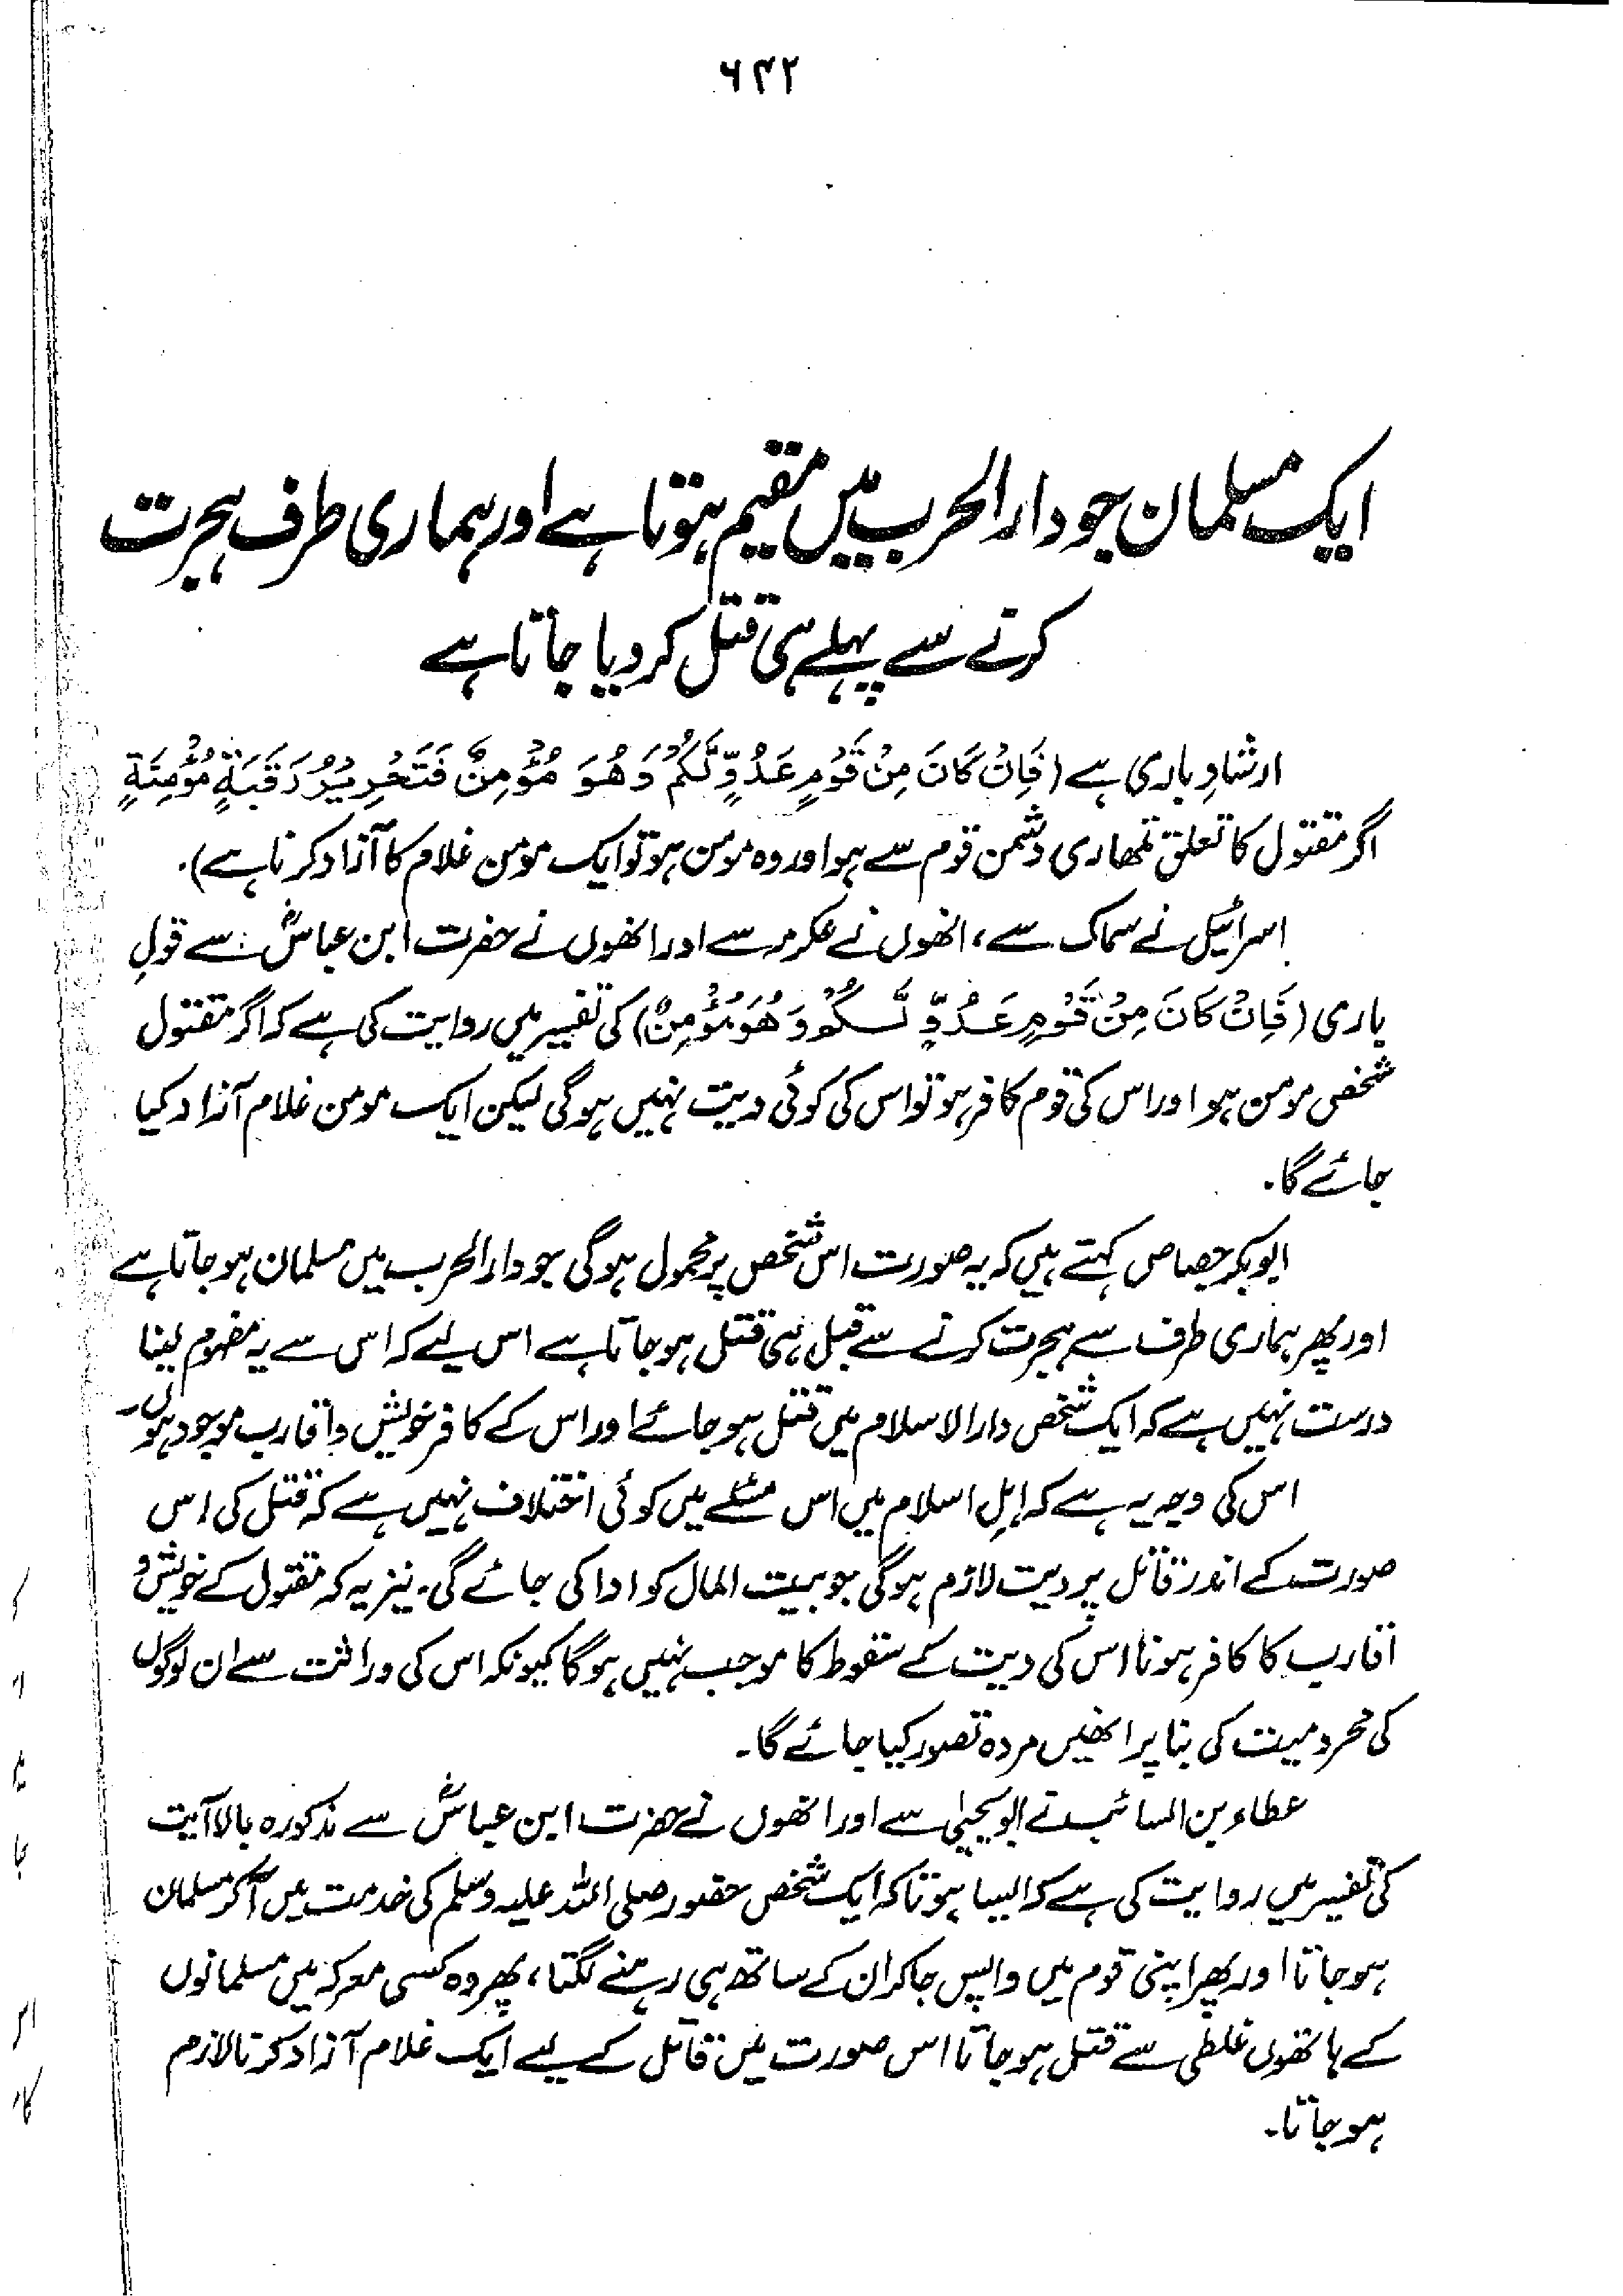 ۶۴۲
ایک مسلمان جو دارالحرب میں مقیم ہوتا ہے اور ہماری طرف ہجرت
کرنے سے پہلے ہی قتل کر دیا جاتا ہے
ارشادِ باری ہے (فَاِنْ كَانَ مِنْ قَوْمٍ عَدُوٍّ لَّكُمْ وَهُوَ مُؤْمِنٌ فَتَحْرِيْرُ رَقَبَةٍ مُّؤْمِنَةٍ
اگر مقتول کا تعلق تمھاری دشمن قوم سے ہو اور وہ مومن ہو تو ایک مومن غلام کا آزاد کرنا ہے)۔
اسرائیل نے سماک سے، انھوں نے عکرمہ سے اور انھوں نے حضرت ابن عباسؓ سے قولِ
باری (فَاِنْ كَانَ مِنْ قَوْمٍ عَدُوٍّ لَّكُمْ وَهُوَ مُؤْمِنٌ) کی تفسیر میں روایت کی ہے کہ اگر مقتول
شخص مومن ہو اور اس کی قوم کافر ہو تو اس کی کوئی دیت نہیں ہوگی لیکن ایک مومن غلام آزاد کیا
جائے گا۔
ابوبکر جصاص کہتے ہیں کہ یہ صورت اس شخص پر محمول ہوگی جو دارالحرب میں مسلمان ہو جاتا ہے
اور پھر ہماری طرف سے ہجرت کرنے سے قبل ہی قتل ہو جاتا ہے اس لیے کہ اس سے یہ مفہوم لینا
درست نہیں ہے کہ ایک شخص دارالاسلام میں قتل ہو جائے اور اس کے کافر خویش و اقارب موجود ہوں۔
اس کی وجہ یہ ہے کہ اہلِ اسلام میں اس مسئلے میں کوئی اختلاف نہیں ہے کہ قتل کی اس
صورت کے اندر قاتل پر دیت لازم ہوگی جو بیت المال کو ادا کی جائے گی۔ نیز یہ کہ مقتول کے خویش و
اقارب کا کافر ہونا اس کی دیت کے سقوط کا موجب نہیں ہوگا کیونکہ اس کی وراثت سے ان لوگوں
کی محرومیت کی بنا پر انھیں مردہ تصور کیا جائے گا۔
عطاء بن السائب نے ابویحییٰ سے اور انھوں نے حضرت ابن عباسؓ سے مذکورہ بالا آیت
کی تفسیر میں روایت کی ہے کہ ایسا ہوتا کہ ایک شخص حضور صلی اللہ علیہ وسلم کی خدمت میں آ کر مسلمان
ہو جاتا اور پھر اپنی قوم میں واپس جا کر ان کے ساتھ ہی رہنے لگتا، پھر وہ کسی معرکہ میں مسلمانوں
کے ہاتھوں غلطی سے قتل ہو جاتا اس صورت میں قاتل کے لیے ایک غلام آزاد کرنا لازم
ہو جاتا۔